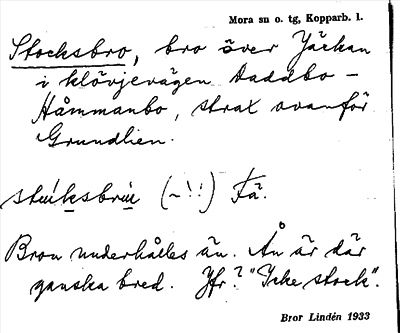 Mora sn o. tg, Kopparb. l.
Stocksbro, bro över Jäckan
i klövjevägen Daddbo -
Håmmanbo, strax ovanför
Grundlien.
(~ ! !) Fä.
Bron underhålles än. Ån är där
ganska bred. Jfr? "Icke stock".
Bror Lindén 1933